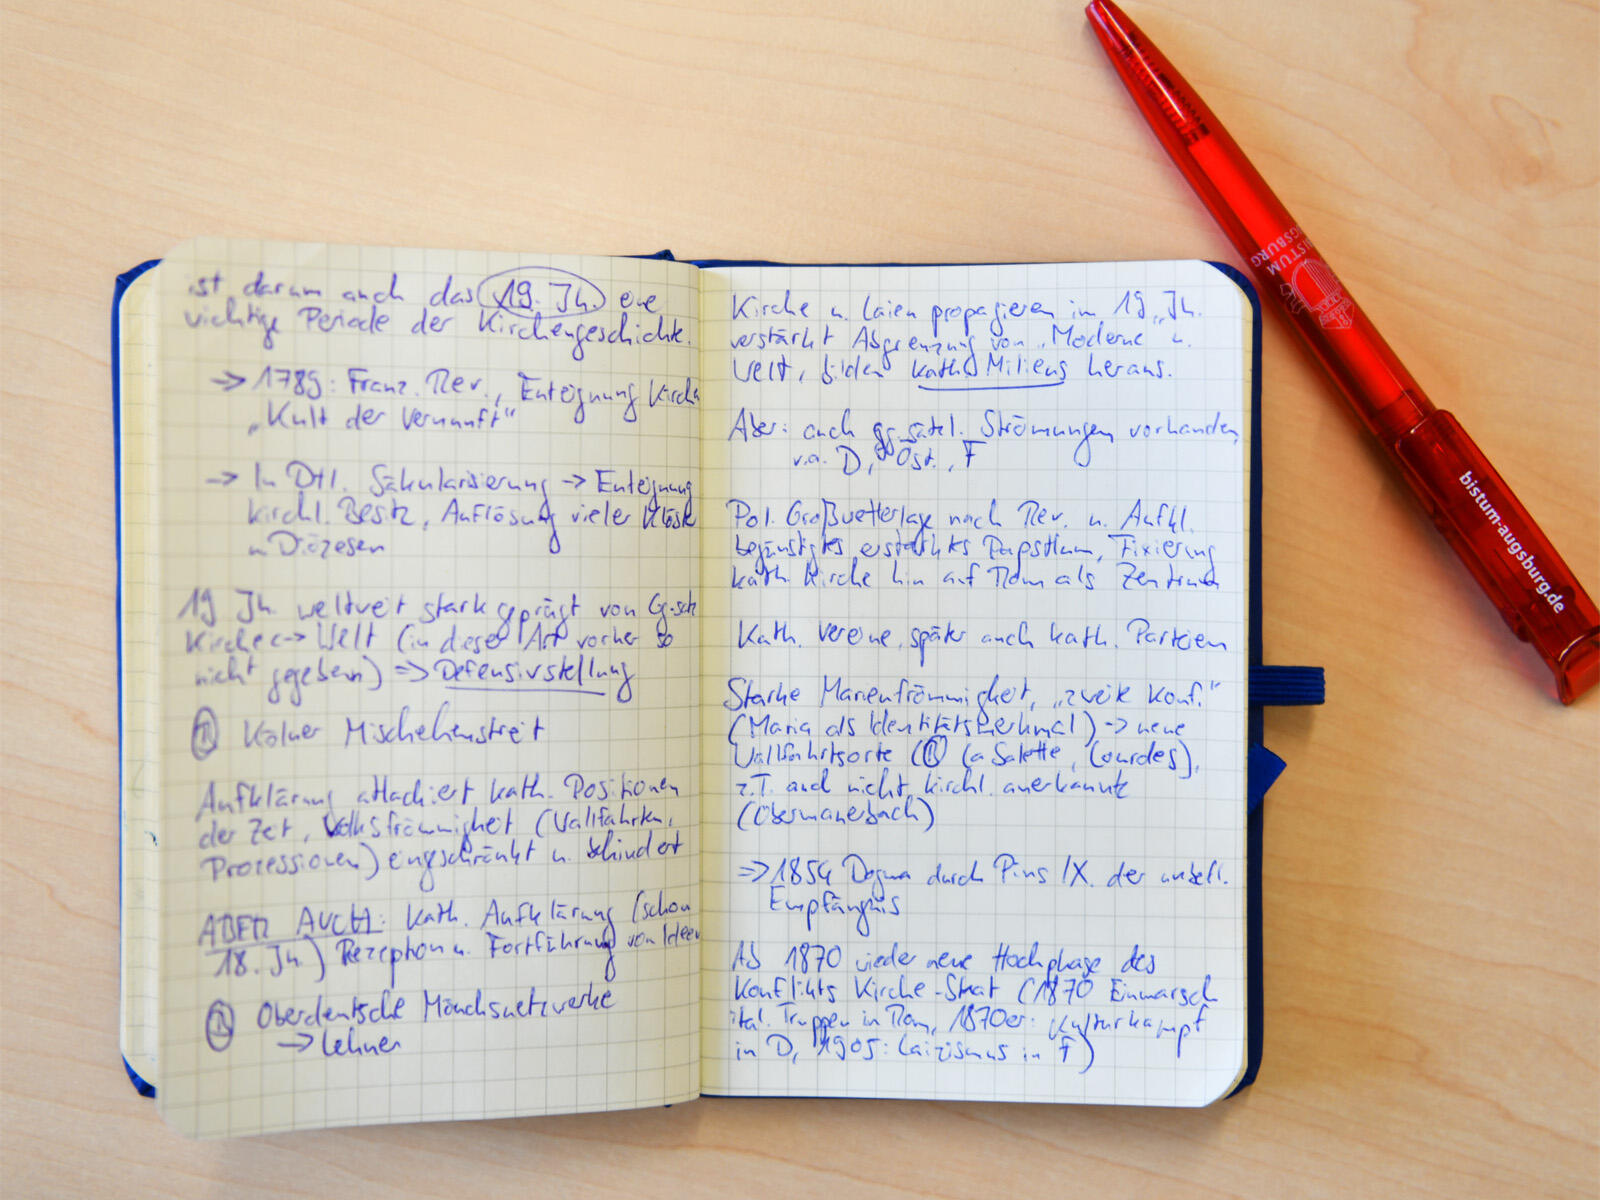 ist darum auch das 19. Jh. eine
wichtige Periode der Kirchengeschichte.
=> 1789: Franz. Rev., Enteignung Kirche
"Kult der Vernunft"
-> In Dtl. Säkularisierung -> Enteignung
kirchl. Besitz, Auflösung vieler Klöster
u. Diözesen
19 Jh. weltweit stark geprägt von Gg.satz
Kirche <-> Welt (in dieser Art vorher so
nicht gegeben) => Defensivstellung
B Kölner Mischehenstreit
Aufklärung attackiert kath. Positionen
der Zeit, Volksfrömmigkeit (Wallfahrten,
Prozessionen) eingeschränkt u. behindert
ABER AUCH: Kath. Aufklärung (schon
18. Jh.) Rezeption u. Fortführung von Ideen
B Oberdeutsche Mönchsnetzwerke
-> Lehner
Kirche u. Laien propagieren im 19. Jh.
verstärkt Abgrenzung von "Moderne u.
Welt, bilden kath. Milieus heraus.
Aber: auch gg.sätzl. Strömungen vorhanden,
v.a. D, Öst., F
Pol. Großwetterlage nach Rev. u. Aufkl.
begünstigt erstarktes Papsttum, Fixierung
kath. Kirche hin auf Rom als Zentrum
Kath. Vereine, später auch kath. Parteien
Starke Marienfrömmigkeit, "zweite Konf."
(Maria als Identitätsmerkmal) -> neue
Wallfahrtsorte (B La Salette, Lourdes),
z.T. auch nicht kirchl. anerkannte
(Obermauerbach)
=> 1854 Dogma durch Pius IX. der unbefl.
Empfängnis
Ab 1870 wieder neue Hochphase des
Konflikts Kirche-Staat (1870 Einmarsch
ital. Truppen in Rom, 1870er: Kulturkampf
in D, 1905: Laizismus in F)
BISTUM
AUGSBURG
bistum-augsburg.de